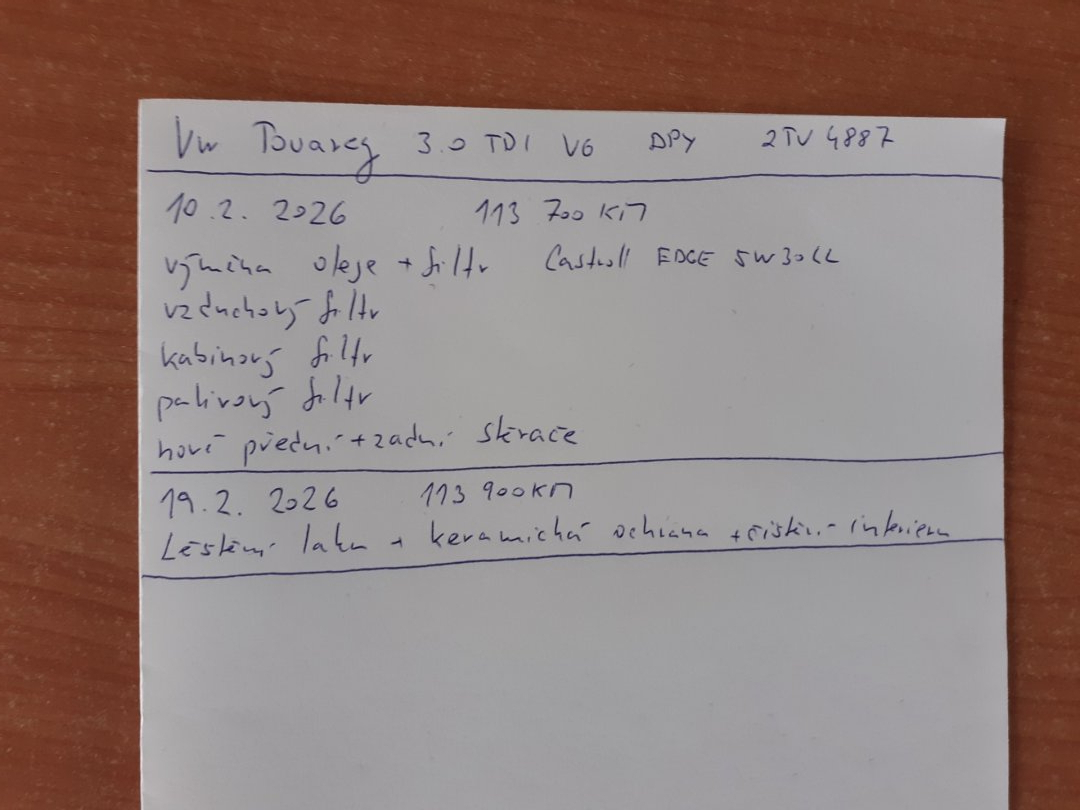 VW Touareg 3.0 TDI V6 DPY 2TV 4887
10.2. 2026 113 700 KM
výměna oleje + filtr Castroll EDGE 5W30 LL
vzduchový filtr
kabinový filtr
palivový filtr
nové přední + zadní stěrače
19.2. 2026 113 900 KM
Leštění laku + keramická ochrana + čistění interieru